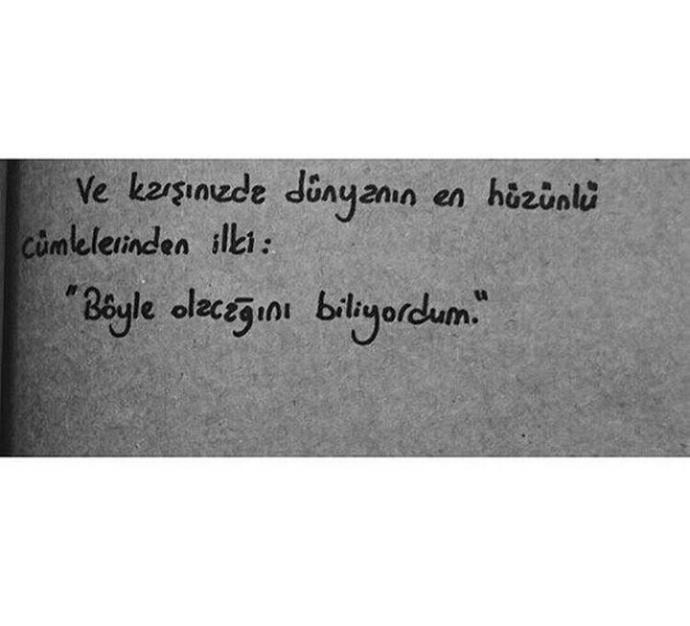 Ve karşınızda dünyanın en hüzünlü
cümlelerinden ilki:
"Böyle olacağını biliyordum."